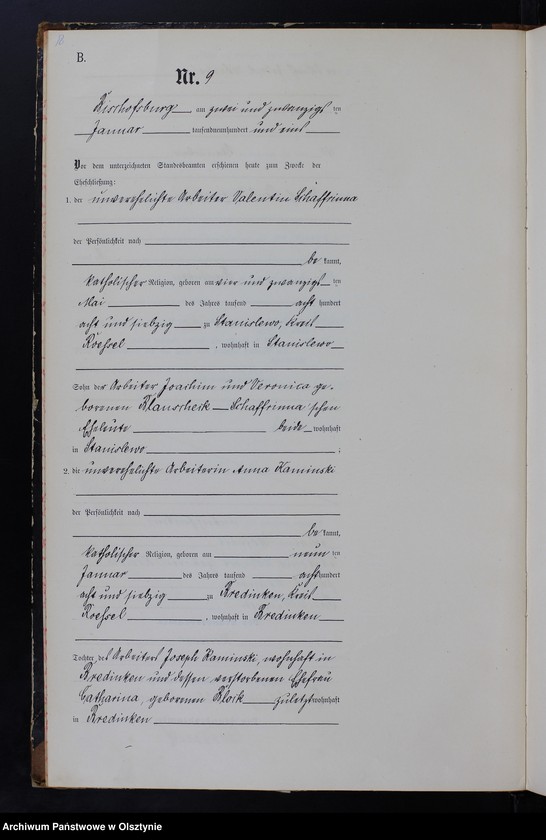 B.
Nr. 9
Bischofsburg am zwei und zwanzigsten
Januar tausendneunhundert und eins
Vor dem unterzeichneten Standesbeamten erschienen heute zum Zwecke der
Eheschließung:
1. der unverehelichte Arbeiter Valentin Schaffrinna
der Persönlichkeit nach
be kannt,
katholischer Religion, geboren am vier und zwanzigsten
Mai des Jahres tausend acht hundert
acht und siebzig zu Stanislewo, Kreis
Roessel, wohnhaft in Stanislewo
Sohn des Arbeiter Joachim und Veronica ge-
borenen Schaffrinna'schen
Eheleute beide wohnhaft
in Stanislewo ;
2. die unverehelichte Arbeiterin Anna Kaminski
der Persönlichkeit nach
be kannt,
katholischer Religion, geboren am neun ten
Januar des Jahres tausend acht hundert
acht und siebzig zu Bredinken, Kreis
Roessel, wohnhaft in Bredinken
Tochter des Arbeiters Joseph Kaminski, wohnhaft in
Bredinken und dessen verstorbenen Ehefrau
Catharina, geborenen zuletzt wohnhaft
in Bredinken
Archiwum Państwowe w Olsztynie